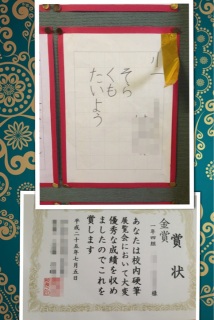 小一
そら
くも
たいよう
賞状
金賞
一年四組
様
あなたは校内硬筆
展覧会において大変
優秀な成績を収め
ましたのでこれを
賞します
平成二十五年七月五日